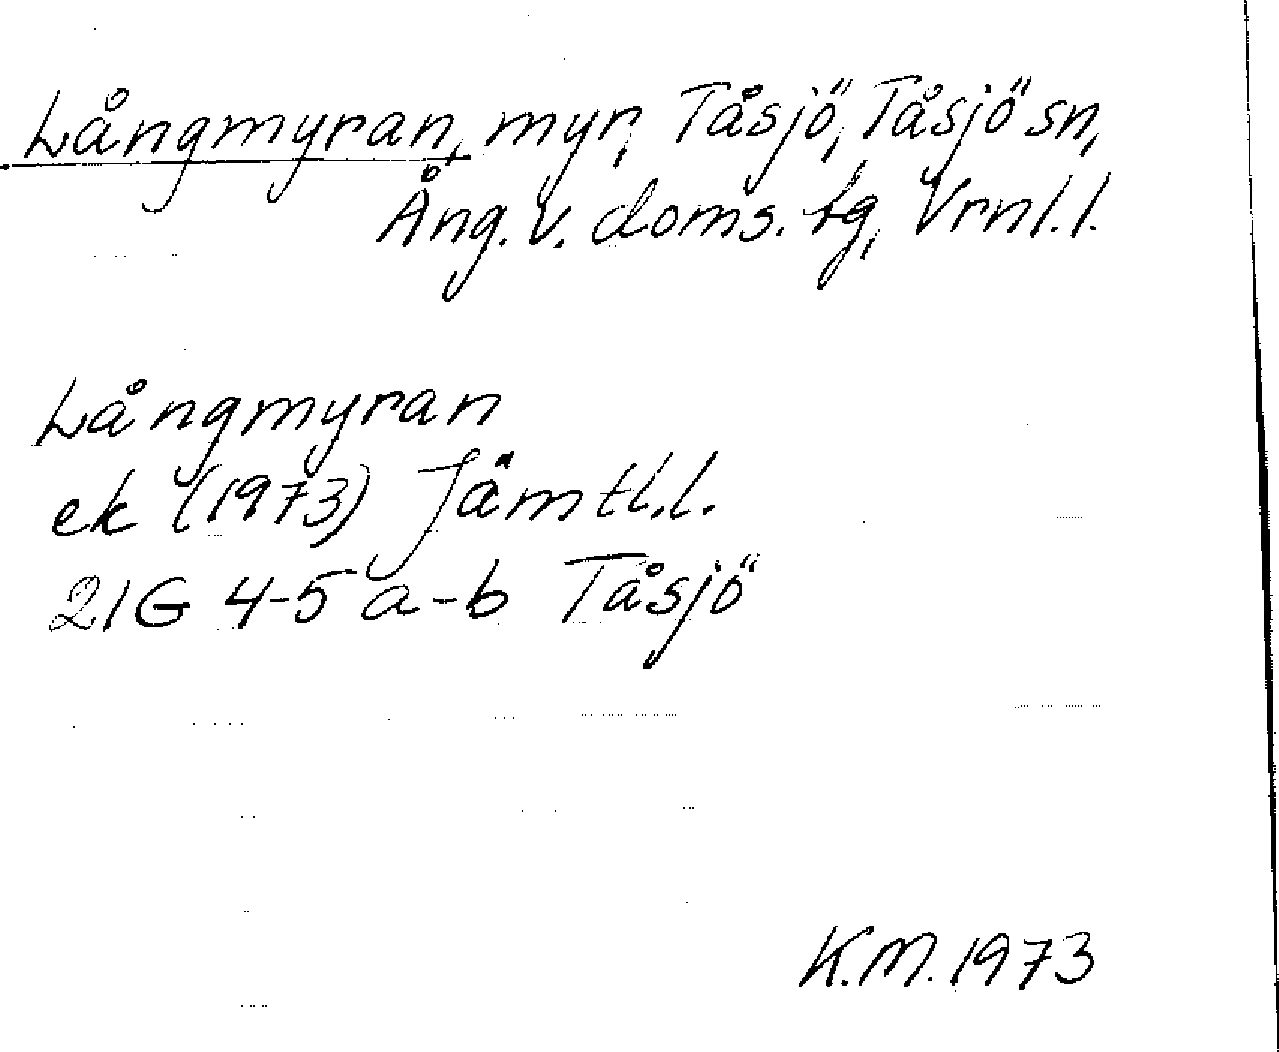 Långmyran, myr, Tåsjö, Tåsjö sn,
Ång. v. doms. tg, Vrnl.l.
Långmyran
ek (1973) Jämtl.l.
21G 4-5 a-b Tåsjö
K.M. 1973